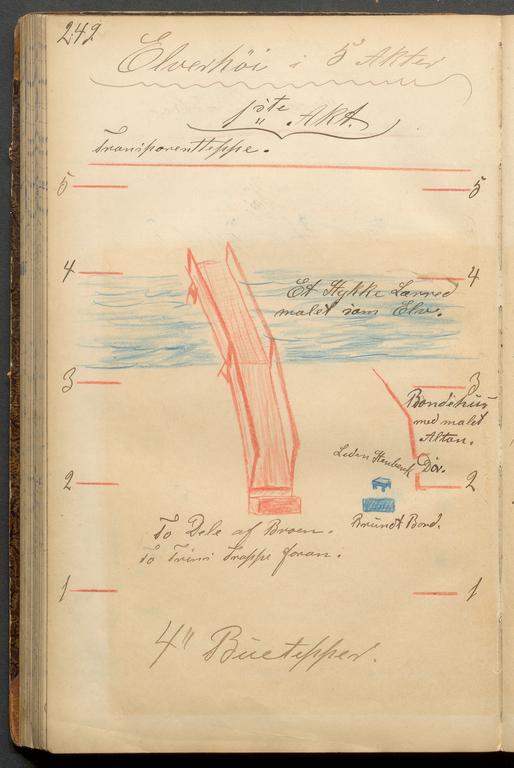 242
Elverhöi i 5 Akter
1ste Akt.
Transparentteppe.
5 5
4 4
Et Stykke Lærred
malet som Elv.
3 3
Bondehus
med malet
Altan.
Liden Dör.
2 2
Brunt Bord.
To Dele af Broen.
To Trins Trappe foran.
1 1
4" Buetepper.